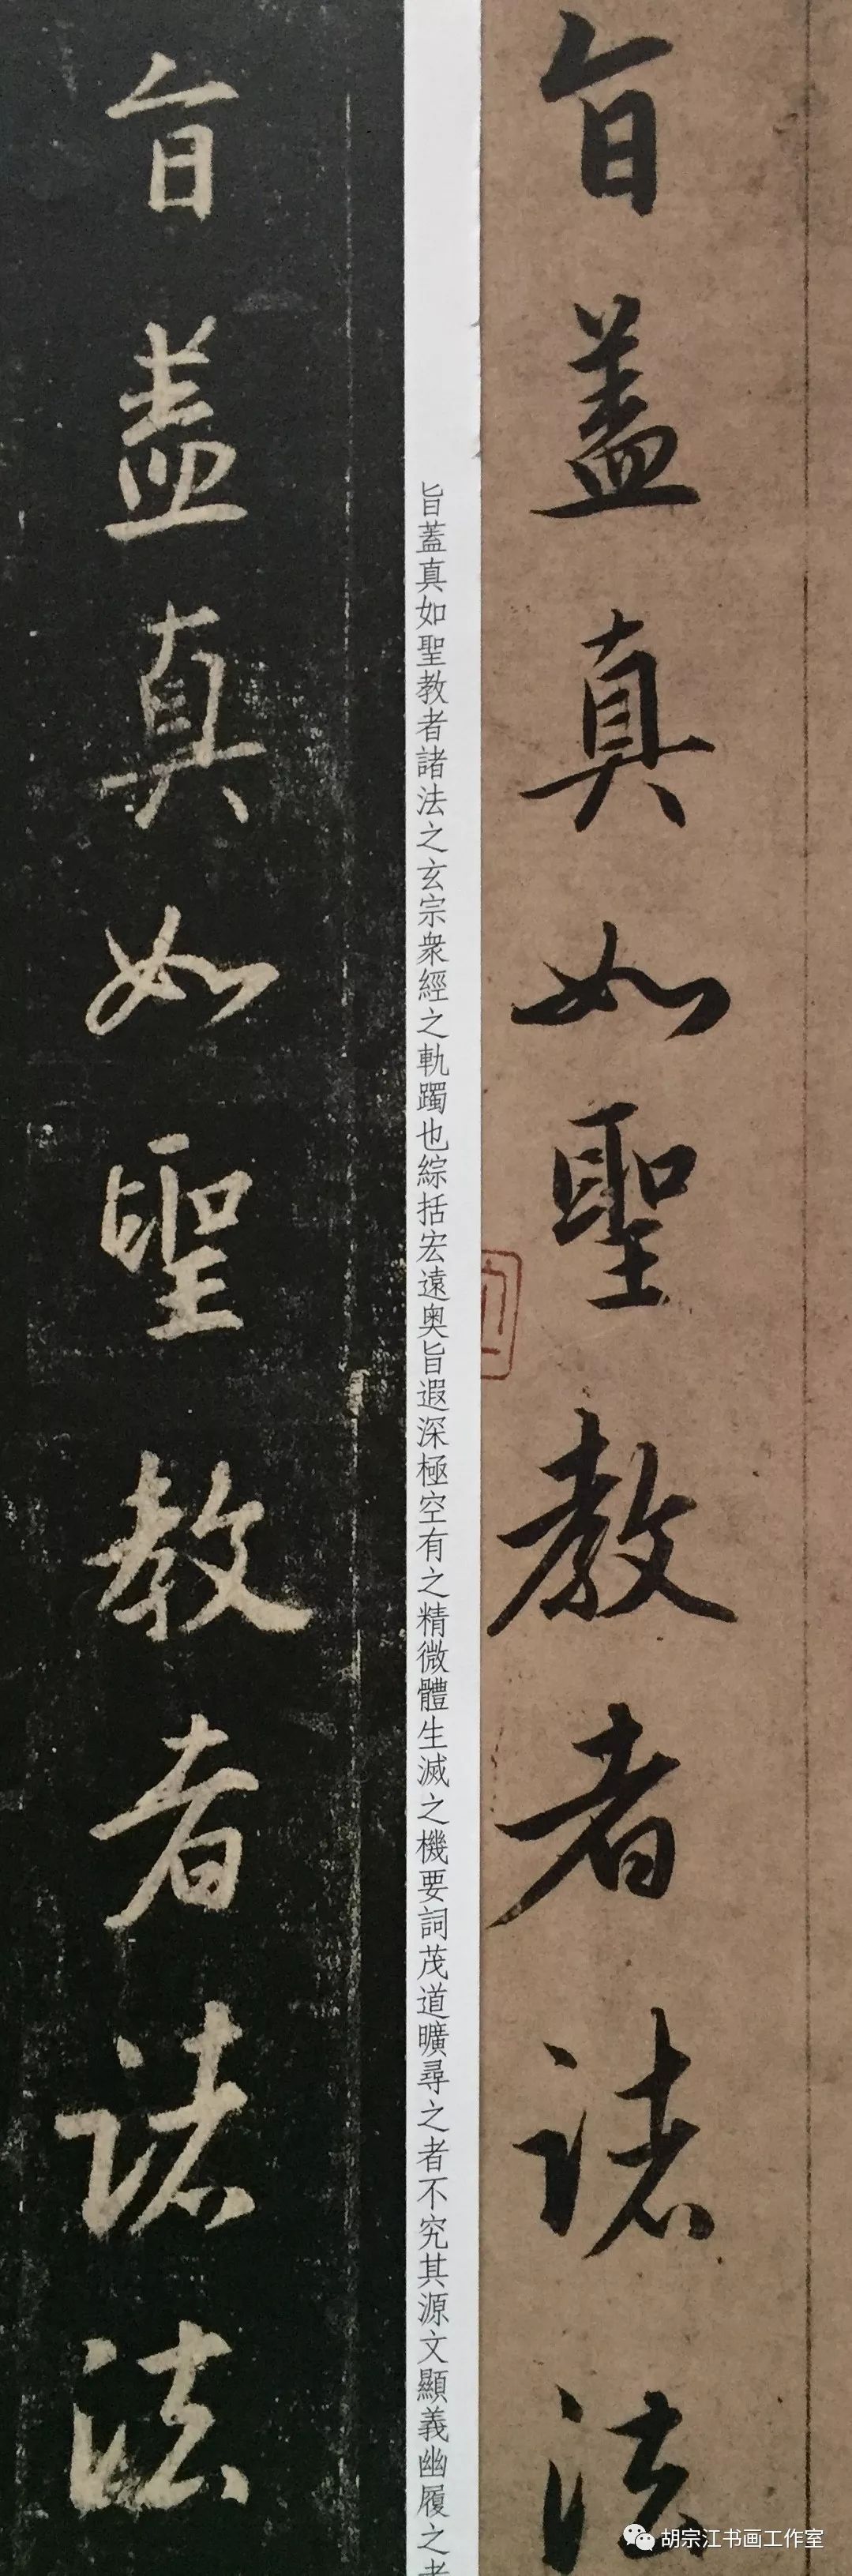 旨蓋真如聖教者諸法
旨蓋真如聖教者諸法之玄宗衆經之軌躅也綜括宏遠奥旨遐深極空有之精微體生滅之機要詞茂道曠尋之者不究其源文顯義幽履之者
旨蓋真如聖教者諸法
胡宗江书画工作室